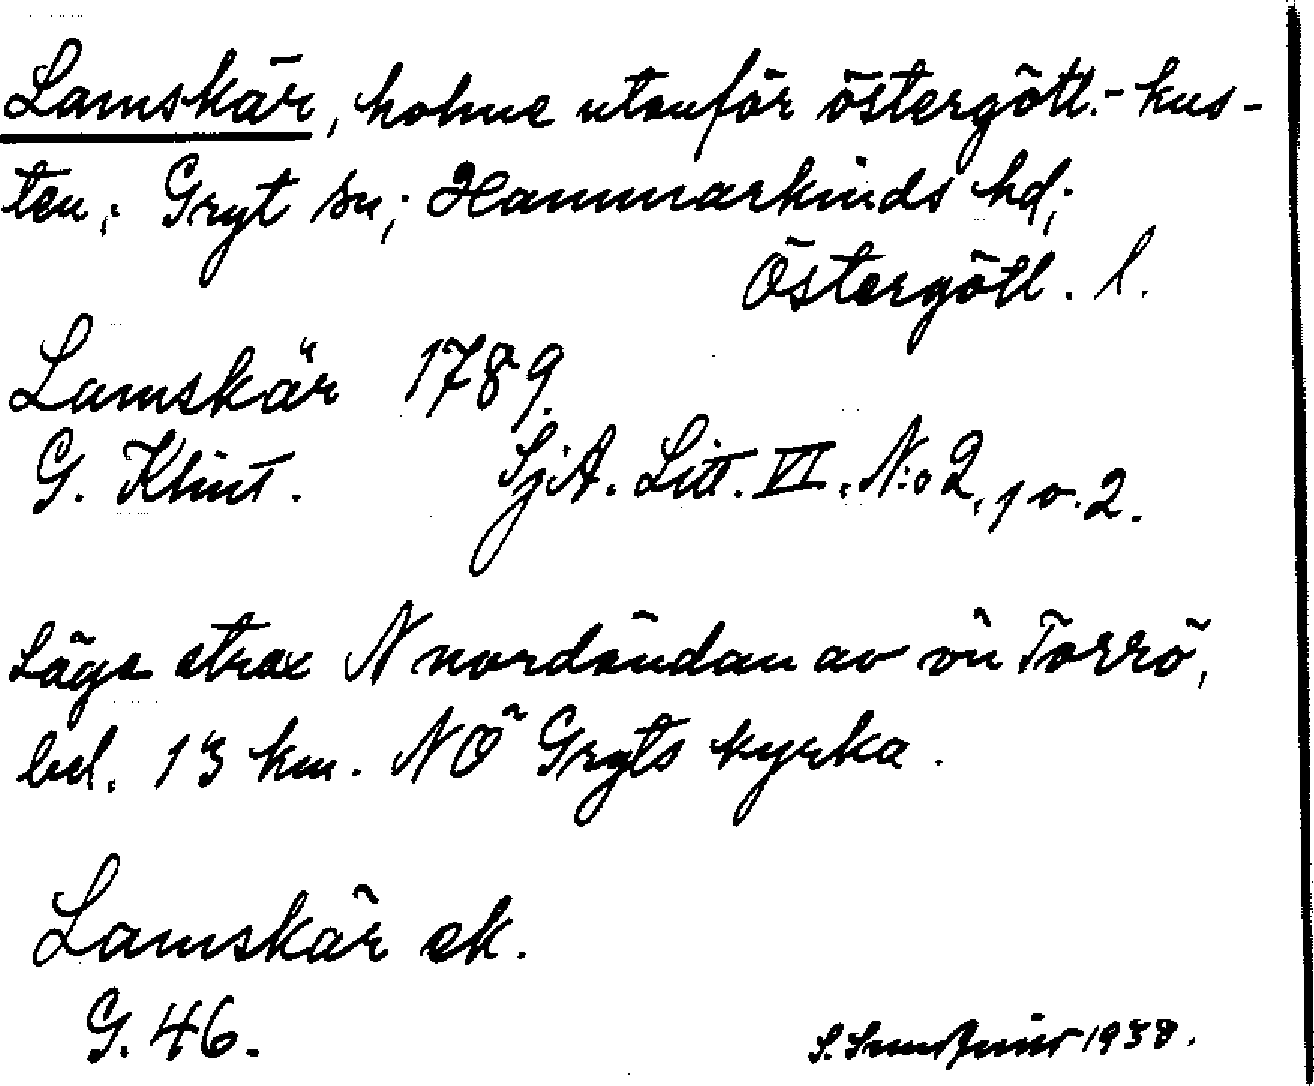 Lamskär, holme utanför östergötl.- kus-
ten; Gryt sn; Hammarkinds hd;
Östergötl. l.
Lamskär 1789.
G. Klint. SjA. Litt. VI. N:o 2, p o. 2.
Läge strax N nordändan av ön Torrö,
bel. 13 km. NÖ Gryts kyrka.
Lamskär ek.
G. 46.
S. 1938.